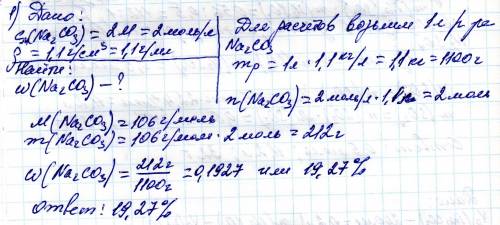 1) Дано:
Cм(Na2CO3) = 2М = 2моль/л
ρ = 1,1г/см³ = 1,1г/мл
Найти:
ω(Na2CO3) – ?
Для расчетов возьмем 1л р-ра
Na2CO3
mр = 1л · 1,1кг/л = 1,1кг = 1100г
n(Na2CO3) = 2моль/л · 1,1л = 2моль
M(Na2CO3) = 106г/моль
m(Na2CO3) = 106г/моль · 2 моль = 212г
ω(Na2CO3) = 212г/1100г = 0,1927 или 19,27%
Ответ: 19,27%